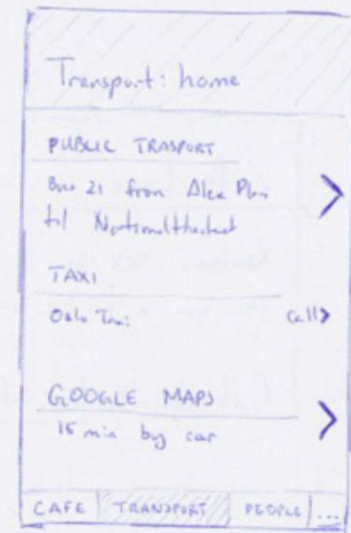 Transport: home
PUBLIC TRASPORT
Bus 21 from Alex Plan
til Nationaltheatret
TAXI
Oslo Taxi
Call>
GOOGLE MAPS
15 min by car
CAFE TRANSPORT PEOPLE ...